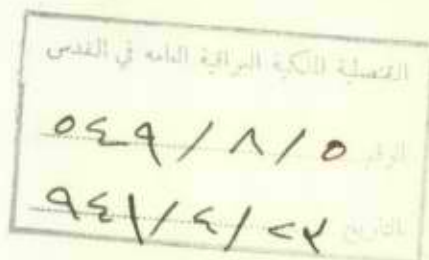 القنصلية الملكية العراقية العامه في القدس
الرقم ٥٤٩/٨/٥
التاريخ ٩٤١/٤/٢٣